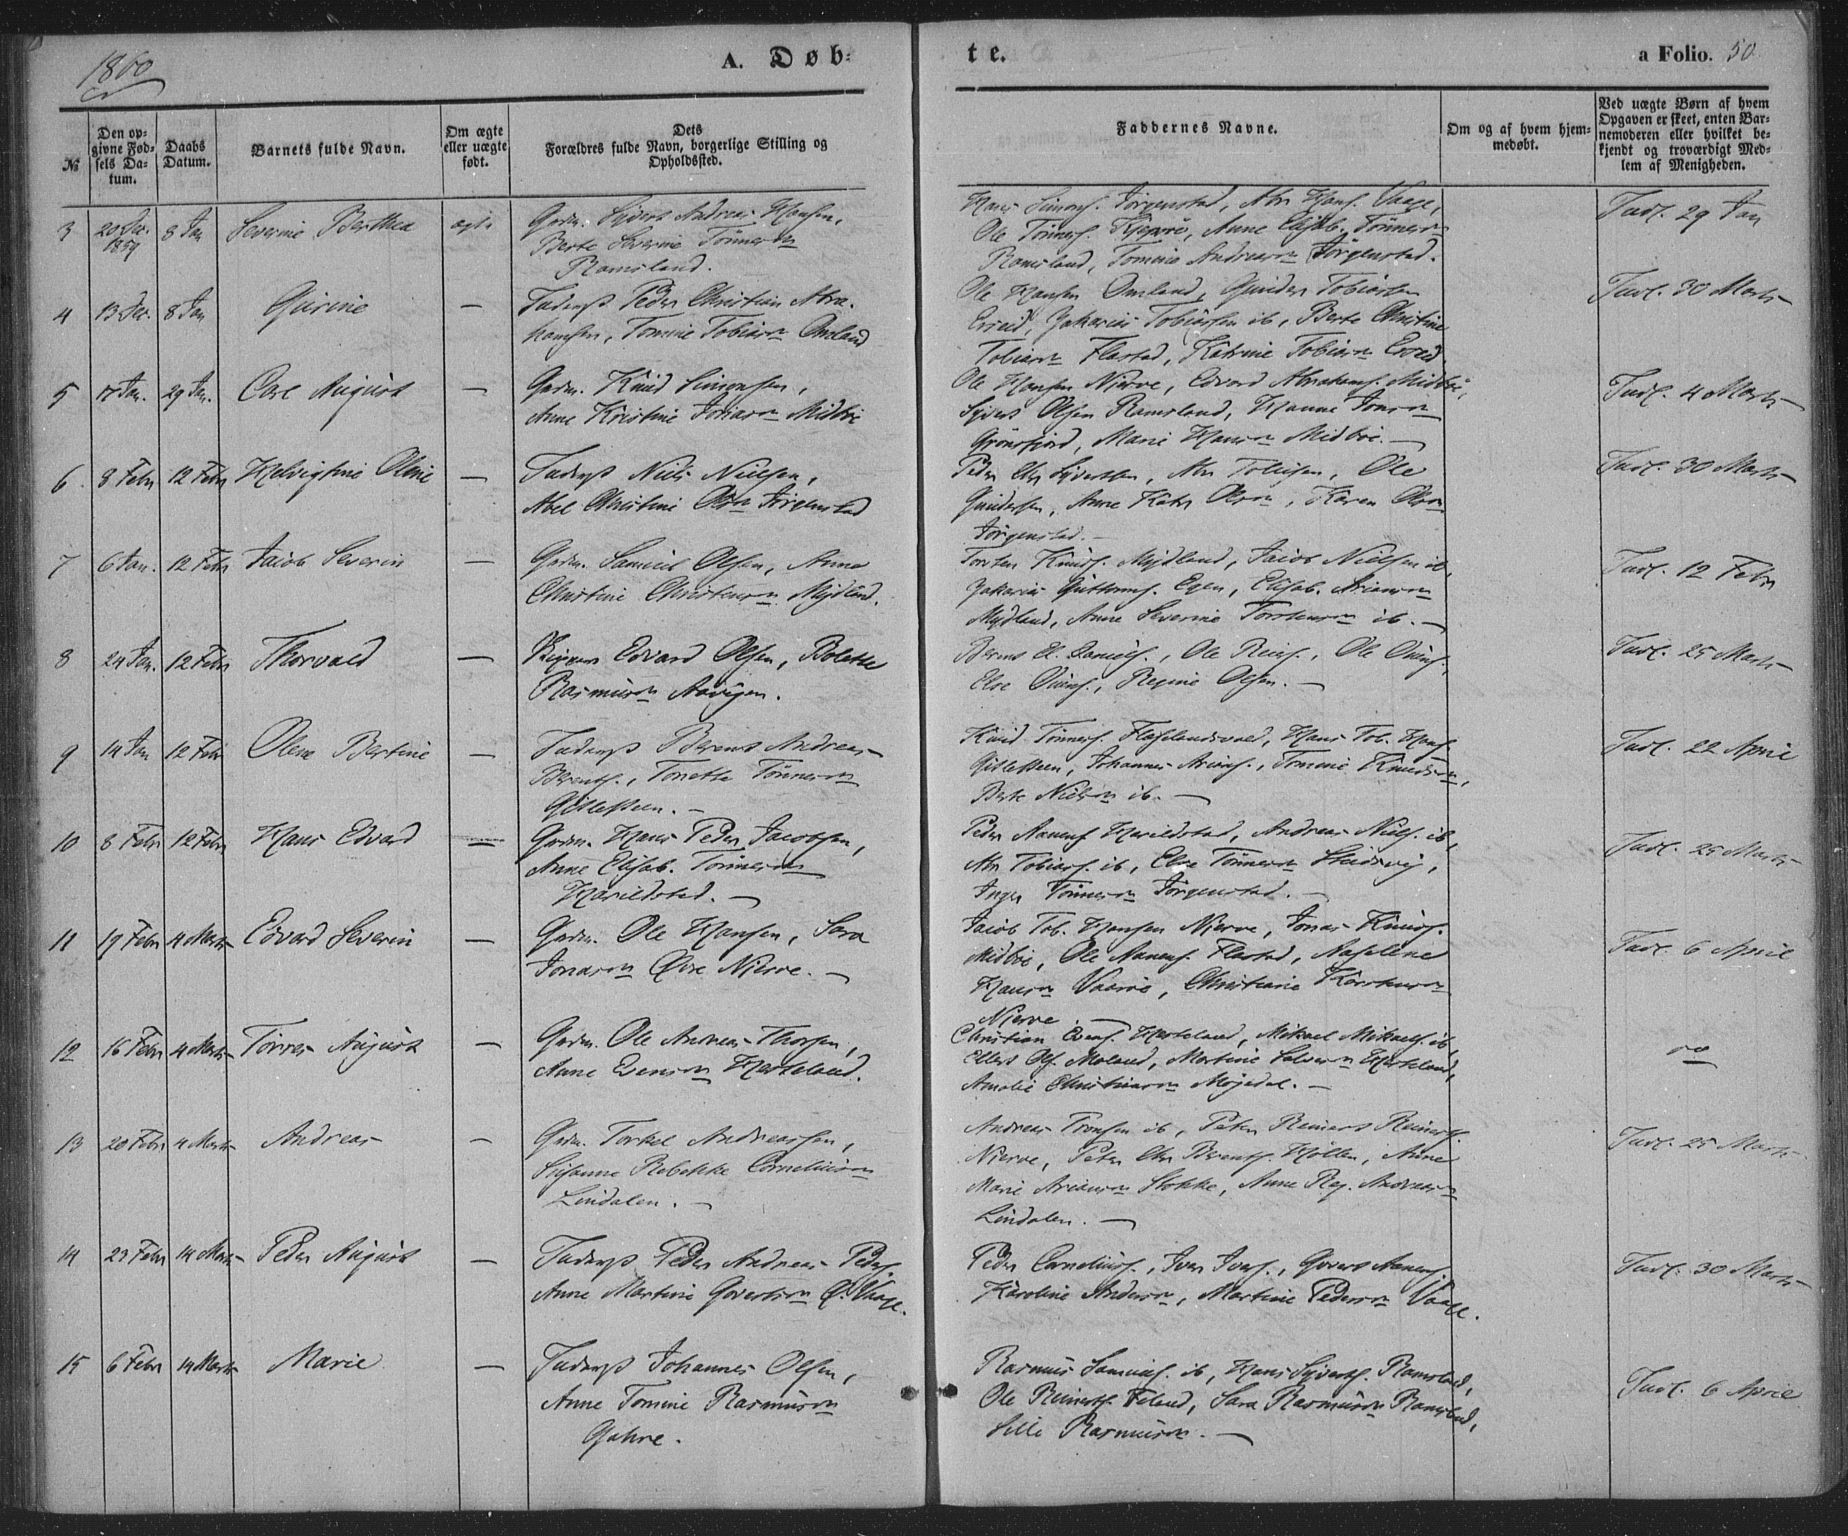 1860
A. Døb-
te.
a Folio. 50
№
Den op-
givne Fød-
sels Da-
tum.
Daabs
Datum.
Barnets fulde Navn.
Om ægte
eller uægte
født.
Dets
Forældres fulde Navn, borgerlige Stilling og
Opholdssted.
Faddernes Navne.
Om og af hvem hjem-
medøbt.
Ved uægte Børn af hvem
Opgaven er skeet, enten Bar-
nemoderen eller hvilket be-
kjendt og troværdigt Med-
lem af Menigheden.
3 20 Dec. 1859 8 Jan Severine Berthea ægte
Gdm. Sivert Andreas Hansen,
Berte Severine Tønnesdn
Ramsland.
Hans Simons. Jørgenstad, Abr Hans. Vaage,
Ole Tønnes. , Anne Elisab. Tønnesdn
Ramsland, Tomine Andreasdn Jørgenstad.
Indl. 29 Jan
4 13 Dec. 8 Jan Gurine —
Inderst Peder Christian Abra-
hamsen, Tomine Tobiasdn Omland
Ole Hansen Omland, Gunder Tobiassen
Erreid, Zakarias Tobiassen ib, Berte Christine
Tobiasdn Flastad, Katrine Tobiasdn Erreid.
Indl. 30 Marts
5 17 Jan. 29 Jan. Carl August —
Gdm. Knud Simonsen,
Anne Kristine Jonasdn Midbøe
Ole Hansen Nierve, Edvard Abrahams. Midbøe,
Syvert Olsen Ramsland, Hanne Jonasdn
Grønsfjord, Marie Hansdn Midbøe. —
Indl. 4 Marts
6 8 Febr 12 Febr Helvigtine Oline —
Inderst Niels Nielsen,
Abel Christine Olsdn Jørgenstad
Peder Chr Syvertsen, Abr Tobiasen, Ole
Gundersen, Anne Kath Olsdn, Karen Olsdn
Jørgenstad. —
Indl. 30 Marts
7 6 Jan. 12 Febr Jacob Severin —
Gdm. Samuel Olsen, Anna
Christine Christensdn Mydland.
Torsten Knuds. Mydland, Jacob Nielsen ib,
Zakarias Guttorms. Egen, Elisab. Ariansdn
Mydland, Anne Severine Torstensdn ib. —
Indl. 12 Febr
8 24 Jan. 12 Febr Thorvald —
Skipper Edvard Olsen, Bolette
Rasmusdn Aavigen.
Berent El. , Ole Reins., Ole ,
Else , Regine Olsen. —
Indl. 25 Marts
9 14 Jan 12 Febr Olene Bertine —
Inderst Berent Andreas
Berents., Tonette Tønnesdn
Gitlesteen. —
Knud Tønnes. , Hans Tob. Hans.
Gitlesteen, Johannes Arians., Tomine Knudsdn,
Berte Nielsdn ib. —
Indl. 22 April
10 8 Febr 12 Febr Hans Edvard —
Gdm. Hans Peder Jacobsen,
Anne Elisab. Tønnesdn
Harildstad. —
Peder Aanens. Harildstad, Andreas Niels. ib,
Abr Tobias. ib, Else Tønnesdn ,
Inger Tønnesdn Jørgenstad. —
Indl. 25 Marts
11 19 Febr 4 Marts Edvard Severin —
Gdm. Ole Hansen, Sara
Jonasdn Øvre Nierve. —
Jacob Tob. Hansen Nierve, Jonas Knuds.
Midbøe, Ole Aanens. Flastad, Aaselene
Hansdn , Christiane Karstensdn
Nierve —
Indl. 6 April
12 16 Febr 4 Marts Tørres August —
Gdm. Ole Andreas Thorsen,
Anne Evensdn Herteland.
Christian Evens. Herteland, Mikael Mikaels. ib,
Ols. Moland, Martine Salvesdn Herteland,
Amalie Christiansdn Møgedal. —
do
13 20 Febr 4 Marts Andreas —
Gdm. Torkel Andreassen,
Susanne Rebekke Corneliusdn
Lindalen. —
Andreas ib, Peter Reinert Reiners.
Nierve, Peter Chr Berents. Høllen, Anne
Marie Ariansdn Stokke, Anne Reg. Andreasdn
Lindalen. —
Indl. 25 Marts
14 23 Febr 14 Marts Peder August —
Inderst Peder Andreas Peders.
Anne Martine Govertsdn Ø. Vaage.
Peder Cornelius., Iver Ivers., Govert Aanens.
Karoline Andersdn, Martine Pedersdn Vaage.
Indl. 30 Marts
15 6 Febr 14 Marts Marie —
Inderst Johannes Olsen,
Anne Tomine Rasmusdn
Gahre.
Rasmus Samuels. ib, Hans Syverts. Ramsland,
Ole Reinerts. Feland, Sara Rasmusdn Ramsland,
Sille Rasmusdn. —
Indl. 6 April